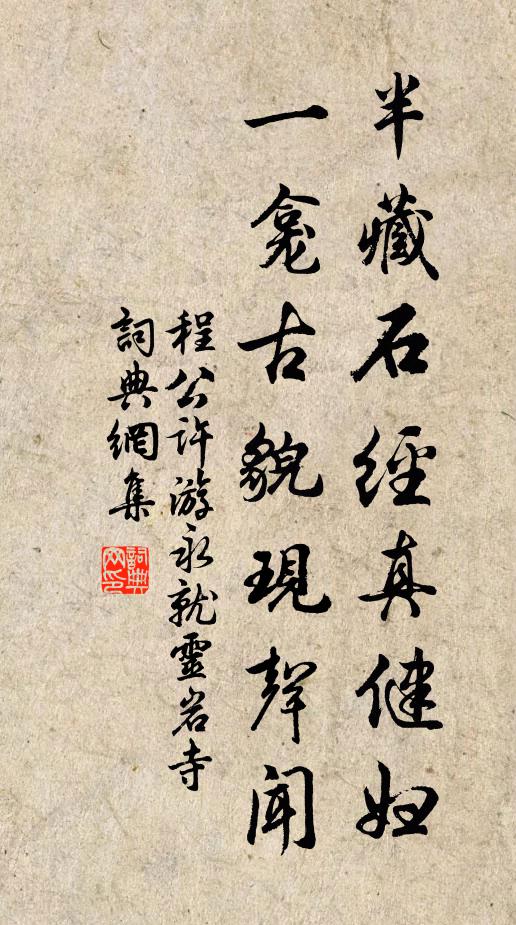 半藏石經真健妇
一龛古貌現聲闻
程公許游永就靈岩寺
詞典網集
詞典网印